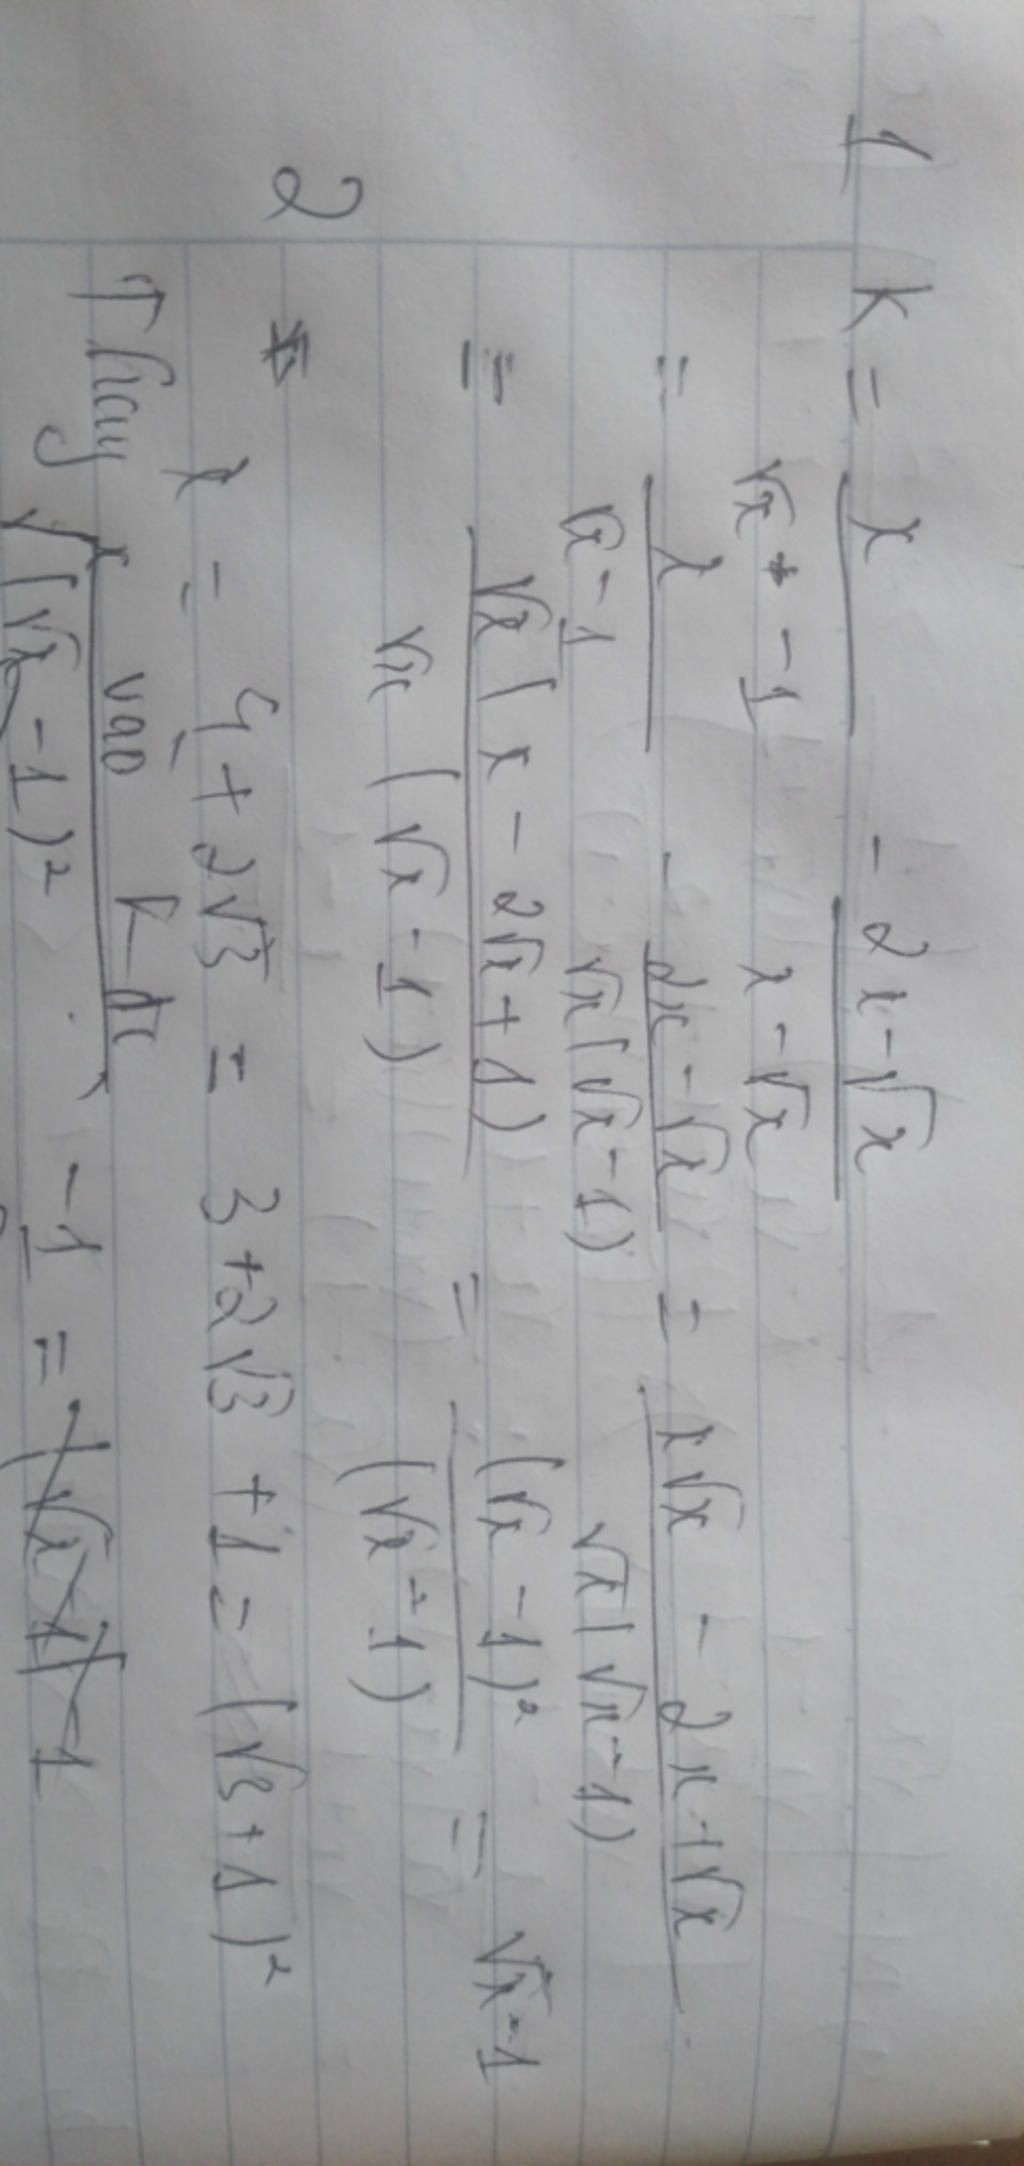 1 K = x / (√x - 1) - (2x - √x) / (x - √x)
= x / (√x - 1) - (2x - √x) / (√x(√x - 1)) = (x√x - 2x + √x) / (√x(√x - 1))
= √x(x - 2√x + 1) / (√x(√x - 1)) = (√x - 1)² / (√x - 1) = √x - 1
2
x = 4 + 2√3 = 3 + 2√3 + 1 = (√3 + 1)²
Thay x vào K đc
√(√x - 1)² - 1 =